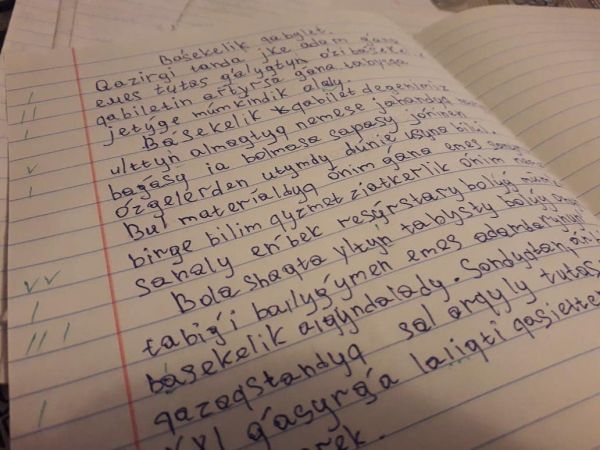 Básekelik qabylet.
Qazirgi tanda jke adam ǵana
emes tutas ǵalygtyn ózi básek
qabiletin artyrsa ǵana tabysqa
jetýge múmkindik alady.
Básekelik qabilet degenimiz
ulttyń almagtyq nemese jahandyq
baǵasy ia bolmasa sapasy jóninen
ózgelerden utymdy dúnie usyna bilui.
Bul materialdyq ónim ǵana emes sonymen
birge bilim qyzmet ziatkerlik ónim
sanaly eńbek resýrstary bolýy
Bolashaqta ýltyń tabysty bolýy onyń
tabiǵi bailyǵymen emes adamdarynyń
básekelik aiqyndalady. Sondyqtan
qazaqstandyq sal arqyly tutas
XXI ǵasyrǵa laiqti qasietter
kerek.